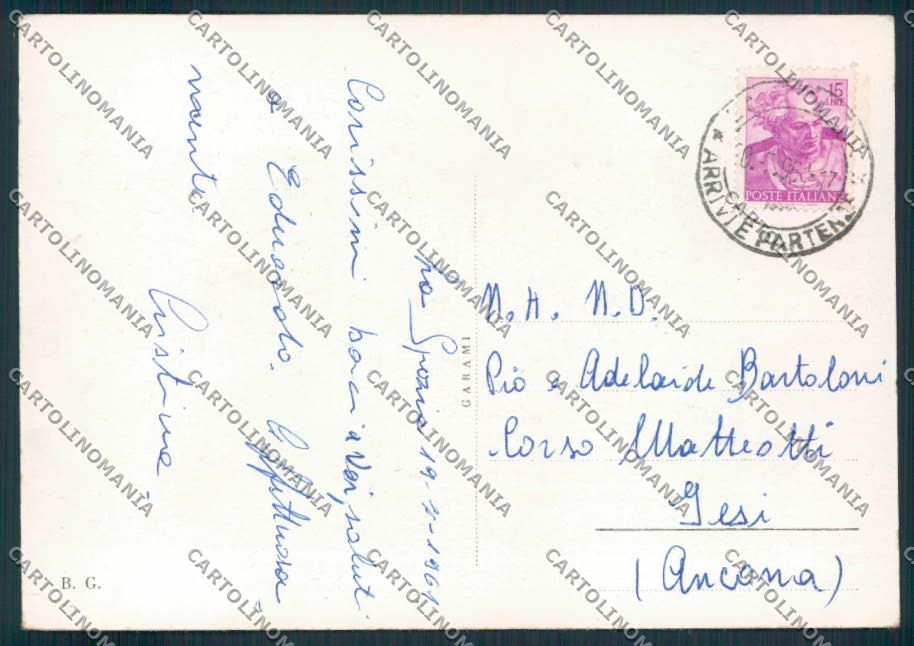 La Spezia 19-7-1961
Carissimi baci a Voi, saluti
a Edoardo. Affettuosa
mente.
Cristina
GARAMI
B. G.
15
LIRE
POSTE ITALIANE
ARRIVI E PARTENZE
N. H. N. D.
Pio e Adelaide Bartoloni
Corso Matteotti
Jesi
(Ancona)
CARTOLINOMANIA